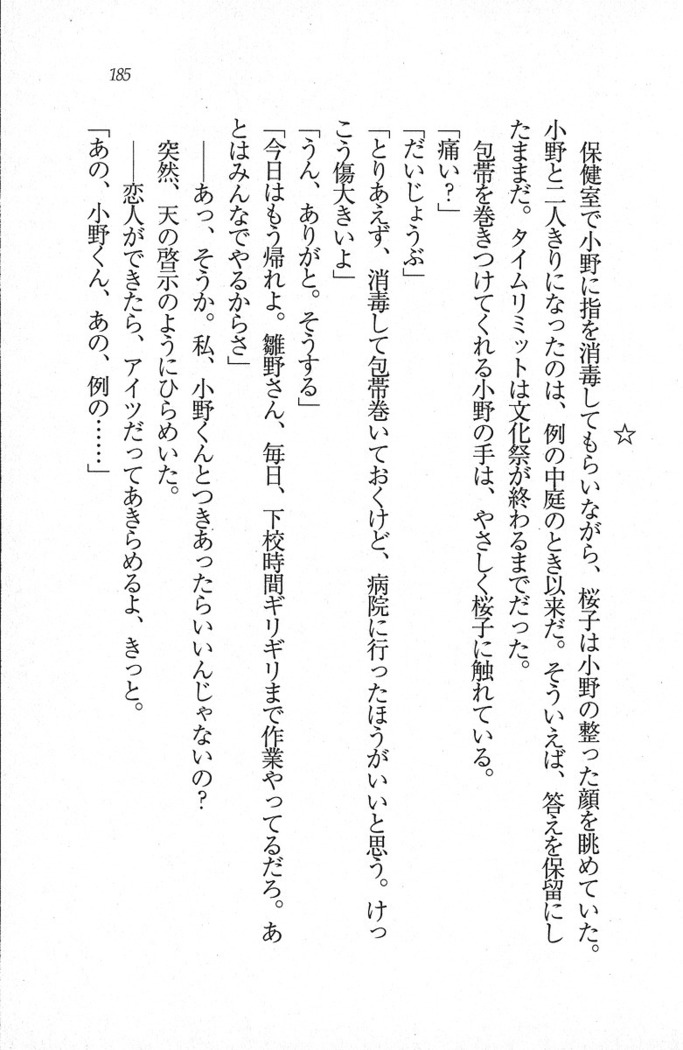 ☆
保健室で小野に指を消毒してもらいながら、桜子は小野の整った顔を眺めていた。
小野と二人きりになったのは、例の中庭のとき以来だ。そういえば、答えを保留にし
たままだ。タイムリミットは文化祭が終わるまでだった。
包帯を巻きつけてくれる小野の手は、やさしく桜子に触れている。
「痛い?」
「だいじょうぶ」
「とりあえず、消毒して包帯巻いておくけど、病院に行ったほうがいいと思う。けっ
こう傷大きいよ」
「うん、ありがと。そうする」
「今日はもう帰れよ。雛野さん、毎日、下校時間ギリギリまで作業やってるだろ。あ
とはみんなでやるからさ」
――あっ、そうか。私、小野くんとつきあったらいいんじゃないの?
突然、天の啓示のようにひらめいた。
――恋人ができたら、アイツだってあきらめるよ、きっと。
「あの、小野くん、あの、例の……」
185